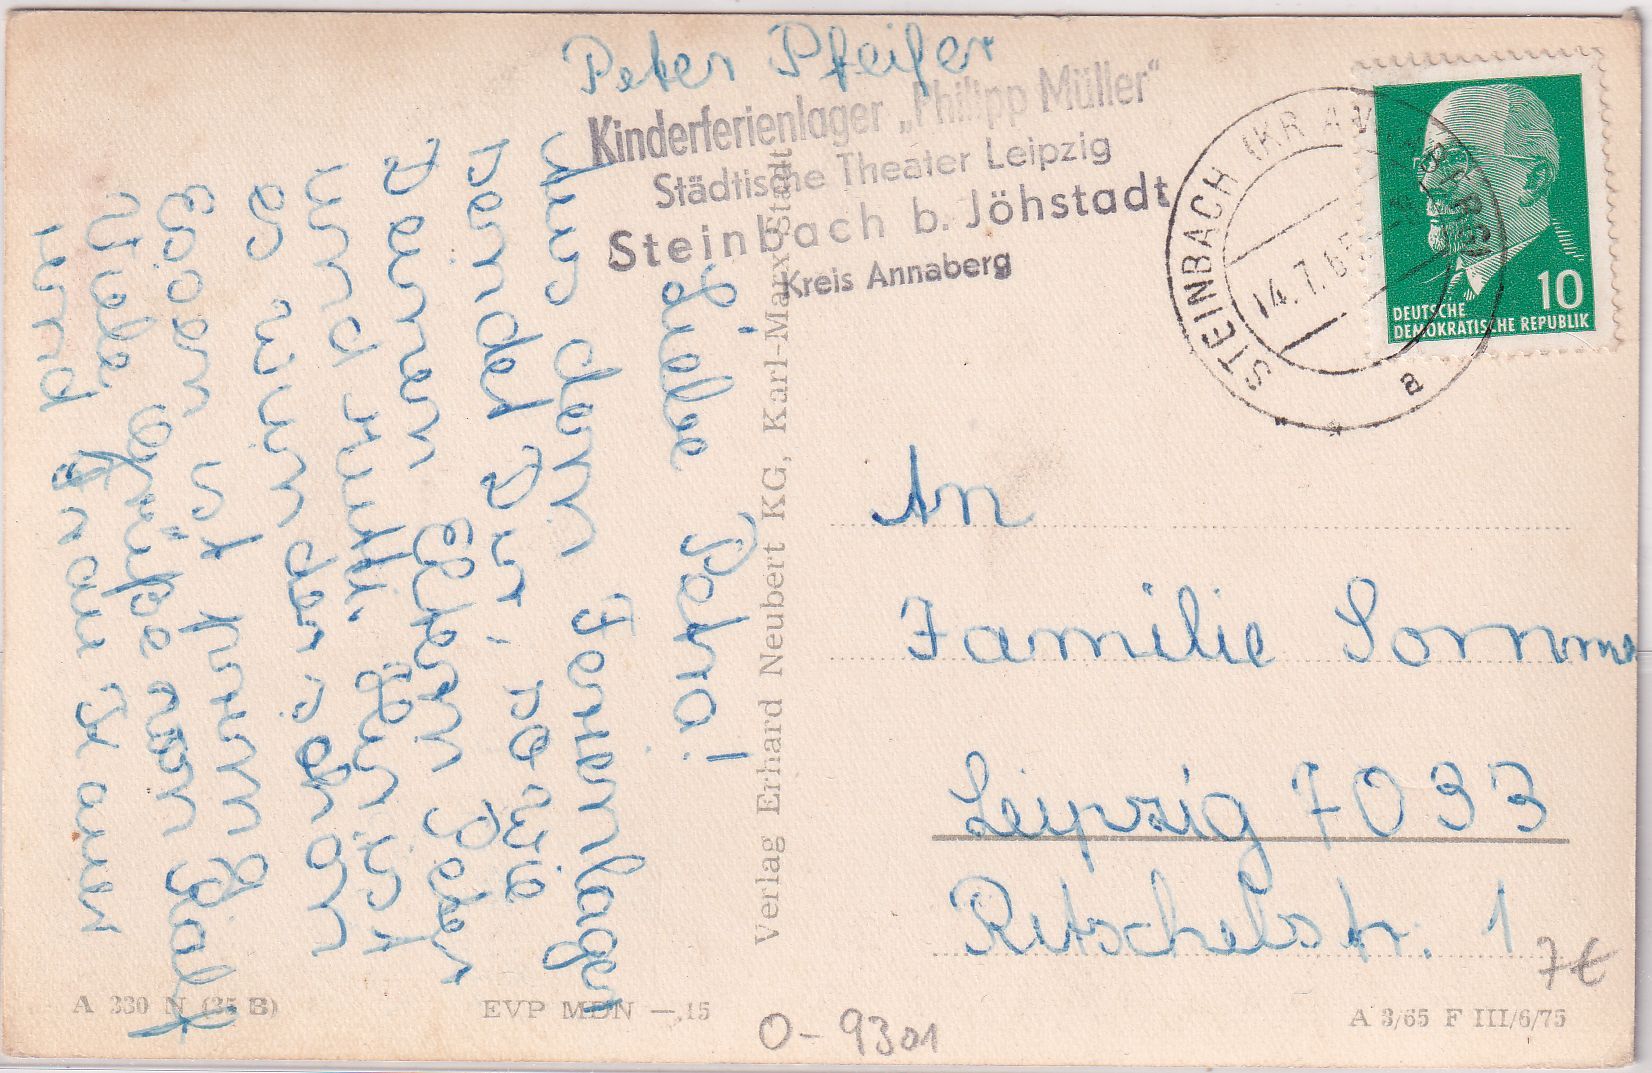 Peter Pfeifer
Kinderferienlager „Philipp Müller“
Städtische Theater Leipzig
Steinbach b. Jöhstadt
Kreis Annaberg
STEINBACH (KR ANNABERG)
14.7.65
a
10
DEUTSCHE
DEMOKRATISCHE REPUBLIK
Liebe Petra!
Aus dem Ferienlager
sendet Dir, sowie
Deinen Eltern Peter
und mutti. Hier ist
es wunderschön
Essen ist prima
Viele Grüße von Ralf
und Frau
Verlag Erhard Neubert KG, Karl-Marx-Stadt
An
Familie Sommer
Leipzig 7033
Ritschelstr. 1
7€
A 330 N (35 B)
EVP MDN —,15
A 3/65 F III/6/75
O-9301